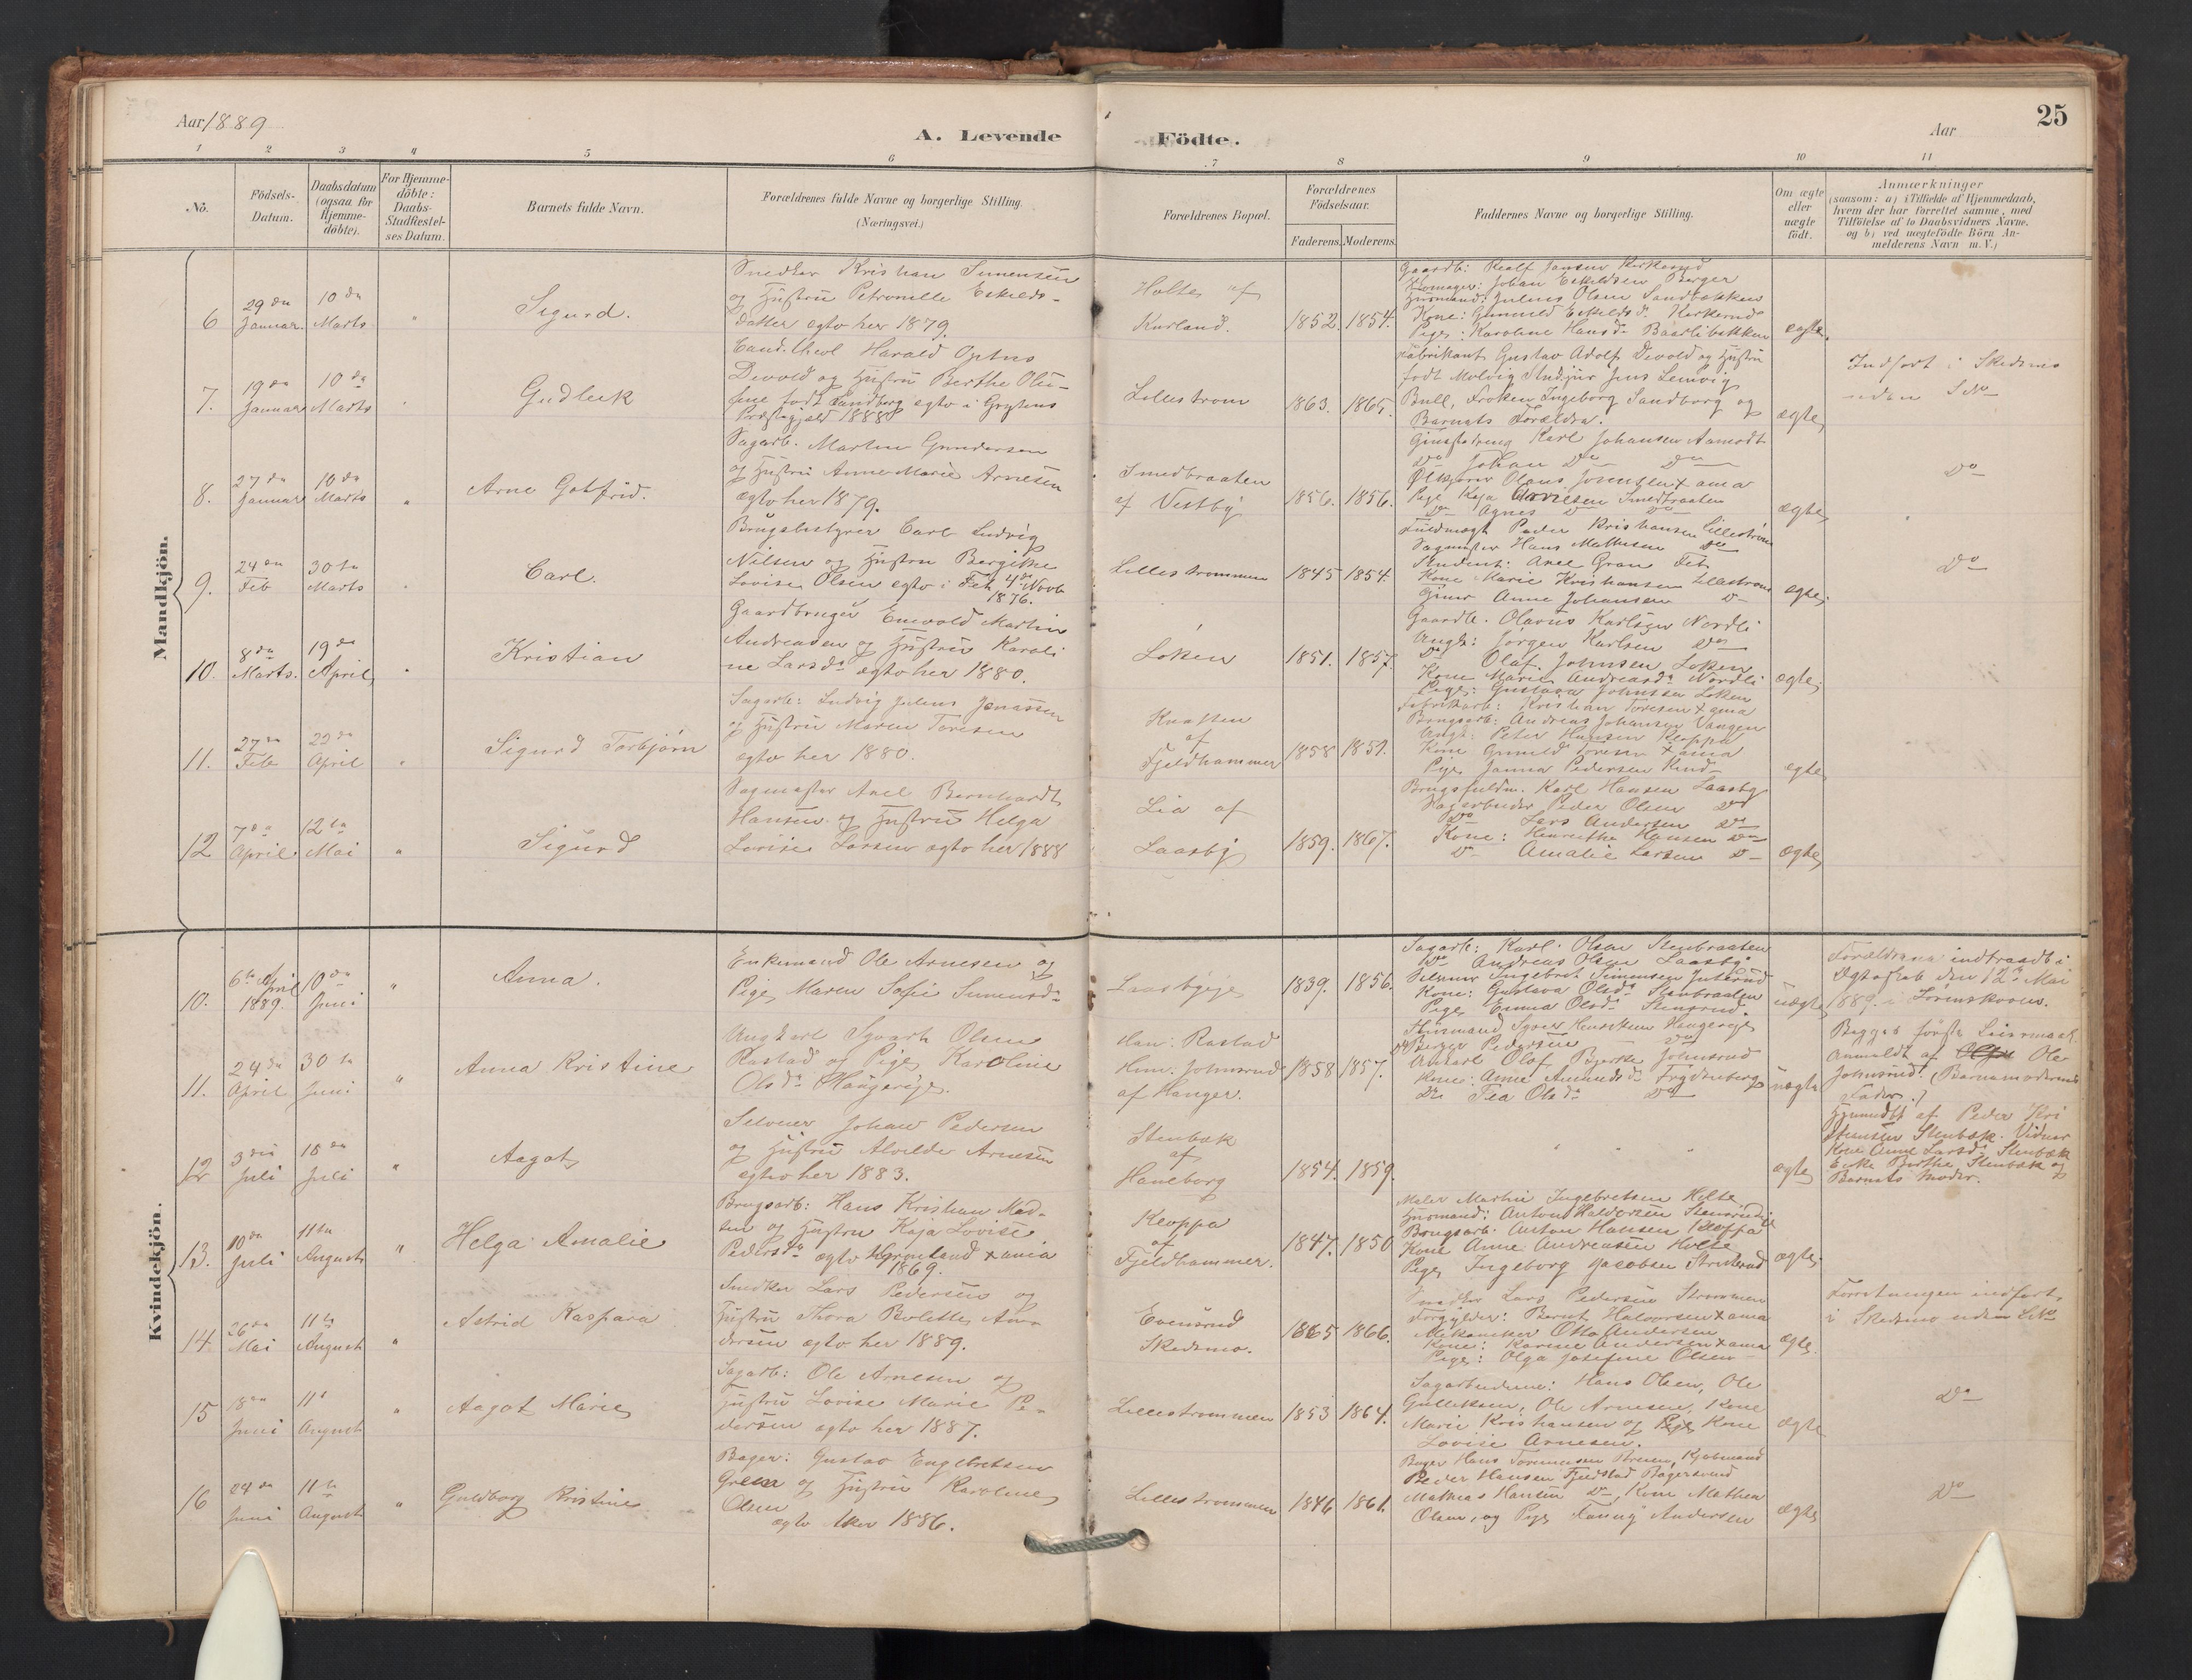 Aar 1889
A. Levende Födte.
Aar
25
1 2 3 4 5 6 7 8 9 10 11
No.
Födsels-Datum.
Daabsdatum (ogsaa for Hjemme-döbte).
For Hjemme-döbte: Daabs-Stadfæstel-ses Datum.
Barnets fulde Navn.
Forældrenes fulde Navne og borgerlige Stilling (Næringsvei.)
Forældrenes Bopæl.
Forældrenes Födselsaar.
Faderens. Moderens.
Faddernes Navne og borgerlige Stilling.
Om ægte eller uægte födt.
Anmærkninger
(saasom: a) i Tilfælde af Hjemmedaab,
hvem der har forrettet samme, med
Tilföielse af to Daabsvidners Navne,
og b) ved uægtefödte Börn An-
melderens Navn m. V.)
Mandkjön.
6 29de Januar. 10de Marts " Sigurd.
Snedker Kristian Simensen
og Hustru Petronelle Eskilds-
datter egtev her 1879.
Holter af
Kurland.
1852. 1854.
Gaardb: Realf Jansen Kirkerud
Johan Eskildsen Berger
Husmand: Julius Olsen Sandbækken
Kone: Gunnild Eskildsd. Kirkerud
Pige: Karoline Hansd. Baarlibakken
ægte.
7. 19de Januar 10de Marts " Gudleik
Cand. theol Harald Optus
Devold og Hustru Berthe Olu-
fine født Sandborg egtev i Grytens
Præstegjæld 1888
Lillestrøm
1863. 1865.
Fabrikant Gustav Adolf Devold og Hustru
født Molvig Studjur Jens Lemvig
Bull, Frøken Ingeborg Sandborg og
Barnets Forældre.
ægte
Indført i Skedsmo
uden No
8. 27de Januar 10de Marts " Arne Gotfrid.
Sagarb. Martin Gundersen
og Hustru Anne Marie Arnesen
egtev her 1879.
Smedbraaten
af Vestby
1856. 1856.
Karl Johansen Aamodt
Do Johan Do Do
Olaus Jorensen Xania
Pige Kaja Arnesen Smedbraaten
Do Agnes Do Do
ægte
Do
9. 24de Feb 30te Marts " Carl.
Brugsbestyrer Carl Ludvig
Nilsen og Hustru Bergitte
Lovise Olsen egtev i Fet 4de Novb
1876.
Lillestrømmen
1845 1854.
Fuldmægt Peder Kristiansen Lillestrøm
Sagmester Hans Mathisen Do
Student: Axel Gran Fet
Kone Marie Kristiansen Lillestrøm
Anne Johansen Do
ægte.
Do
10. 8de Marts. 19de April " Kristian
Gaardbruger Enevold Martin
Andreasen og Hustru Karoli
ne Larsd. egtev her 1880.
Løken
1851. 1857.
Gaardb. Olavus Karlsen Nordli
Ungk: Jørgen Karlsen Do
Do Olaf Johnsen Løken
Kone Marie Andreasd. Nordli
Pige: Gustava Johnsen Løken
ægte.
11. 27de Feb 22de April " Sigurd Torbjørn
Sagarb: Ludvig Julius Jonassen
og Hustru Maren Toresen
egtev her 1880.
Knatten
af
Fjeldhammer
1858 1859.
Fabrikarb: Kristian Toresen Xania
Brugsarb: Andreas Johansen Vangen
Ungk: Peter Hansen Kloppa
Kone Gunnild Toresen Xania
Pige Janna Pedersen Rud
ægte
12 7de April 12te Mai " Sigurd
Sagmester Axel Bernhardt
Hansen og Hustru Helga
Lovise Larsen egtev her 1888
Lia af
Laasby
1859. 1867.
Brugsfuldm. Karl Hansen Laasby
Sagarbeider Peder Olsen Do
Do Lars Andersen Do
Kone: Henriette Hansen Do
Do Amalie Larsen Do
ægte
Kvindekjön.
10. 6te April 1889. 10de Juni " Anna.
Enkemand Ole Arnesen og
Pige Maren Sofie Simensd.
Laasbyeie
1839. 1856.
Sagarb: Karl Olsen Stenbraaten
Do Andreas Olsen Laasby
Selveier Ingebret Simensen Julsrud
Kone: Gustava Olsd. Stenbraaten
Pige Emma Olsd. Stensrud.
uægte
Forældrene indtraadt i
Ægteskab den 12te Mai
1889 i Lørenskoven.
11. 24de April 30te Juni " Anna Kristine
Ungkarl Syvert Olsen
Rastad og Pige Karoline
Olsd. Haugereie.
Han: Rastad
Hun. Johnsrud
af Hauger.
1858 1857.
Husmand Syver Henriksen Haugereie
Do Berger Pedersen Do
Unkarl Olaf Bjerke Johnsrud
Kone: Anne Amundsd. Frydenberg
Do Tea Olsd. Do
uægte
Begges første Leiermaal
Anmeldt af Ole
Johnsrud. (Barnemoderens
Fader.)
12 3die Juli 15de Juli " Aagot
Selveier Johan Pedersen
og Hustru Alvilde Arnesen
egtev her 1883.
Stenbæk
af
Haneborg
1854. 1859.
" " "
ægte
Hjemdbt af Peder Kri
stensen Stenbæk. Vidner
Kone Anne Larsd. Stenbæk
Enke Berthe Stenbæk og
Barnets Moder.
13. 10de Juli 11te August " Helga Amalie
Brugsarb: Hans Kristian Mad-
sen og Hustru Kaja Lovise
Pedersd. egtev Grønland Xania
1869.
Kloppa
af
Fjeldhammer.
1847. 1850
Maler Martin Ingebretsen Holte
Husmand: Anton Halvorsen Stensrud
Brugsarb: Anton Hansen Kloppa
Kone Anne Andreasen Holte
Pige Ingeborg Jacobsen
ægte.
14. 26de Mai 11te August " Astrid Kaspara
Snedker Lars Pedersen og
Hustru Thora Bolette An-
dersen egtev her 1889.
Evensrud
Skedsmo.
1865 1866.
Snedker Lars Pedersen Strømmen
Forgylder: Bernt Halvorsen Xania
Mekaniker Otto Andersen
Kone: Karine Andersen Xania
Pige: Olga Josefine Olsen
ægte.
Forretningen indført
i Skedsmo uden No
15 18de Juni 11te August " Aagot Marie
Sagarb: Ole Arnesen og
Hustru Lovise Marie Pe-
dersen egtev her 1887.
Lillestrømmen
1853 1864.
Sagarbeiderne: Hans Olsen, Ole
Gulliksen, Ole Arnesen, Kone
Marie Kristiansen og Kone
Lovise Arnesen.
ægte
Do
16 24de Juni 11te August " Guldborg Kristine
Bager: Gustav Engebretsen
Green og Hustru Karoline
Olsen
egtev Aker 1886.
Lillestrømmen
1846 1861.
Bager Hans Tommesen Breien, Kjøbmand
Peder Hansen Fjeldstad Bagersvend
Mathias Hansen Do, Kone Mathea
Olsen, og Pige Fanny Andersen
ægte
Do